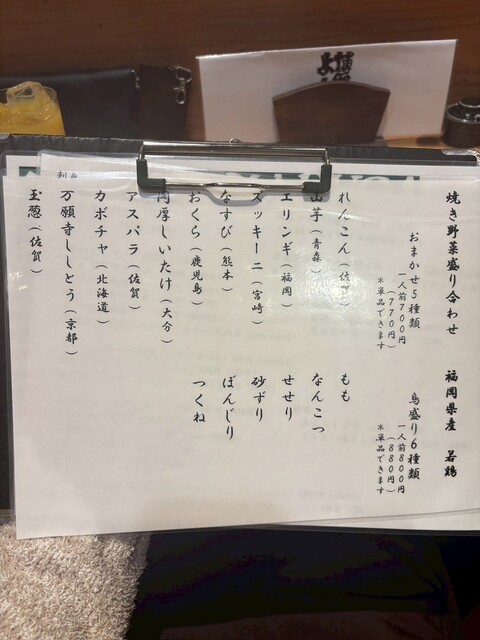 焼き野菜盛り合わせ
おまかせ5種類
一人前700円
(770円)
*単品できます
れんこん(佐賀)
山芋(青森)
エリンギ(福岡)
ズッキーニ(宮崎)
なすび(熊本)
おくら(鹿児島)
肉厚しいたけ(大分)
アスパラ(佐賀)
カボチャ(北海道)
万願寺ししとう(京都)
玉葱(佐賀)
福岡県産 若鶏
鳥盛り6種類
一人前800円
(880円)
*単品できます
もも
なんこつ
せせり
砂ずり
ぼんじり
つくね